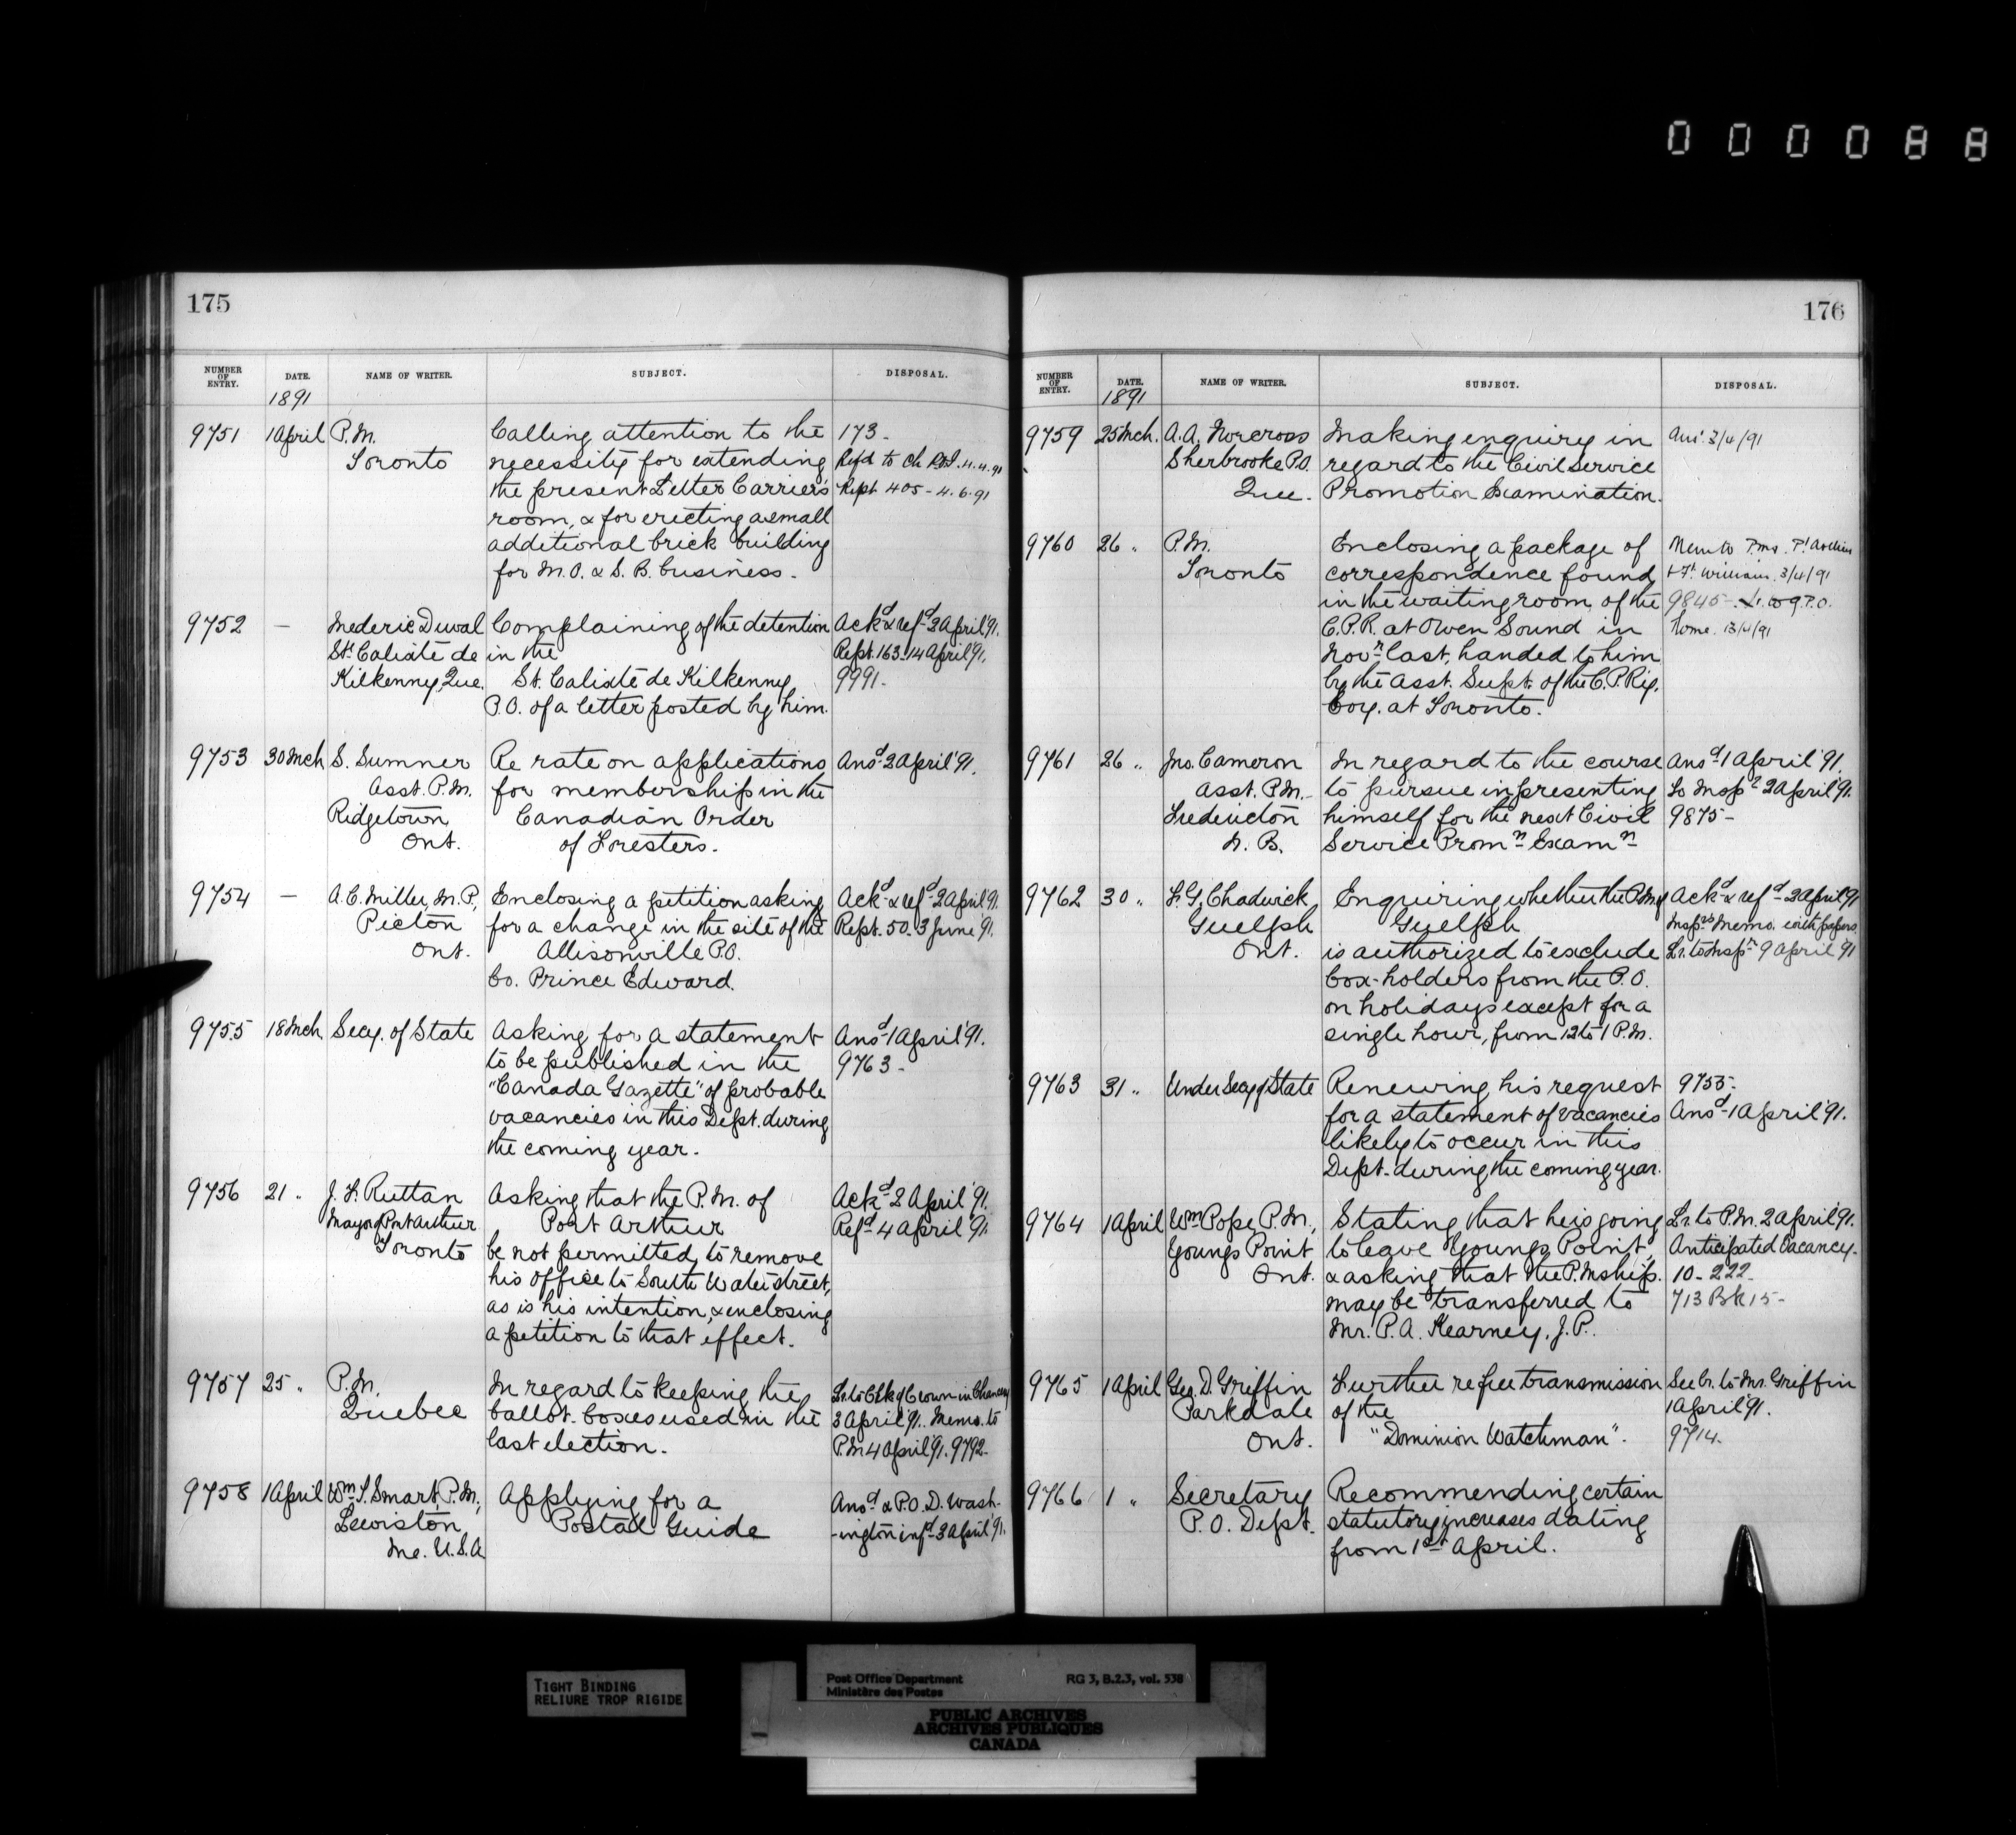 000088
175
NUMBER OF ENTRY. DATE. NAME OF WRITER. SUBJECT. DISPOSAL.
1891
9751 1 April P.M. Calling attention to the 173-
Toronto necessity for extending Refd to Ch P.O.I. 11.4.91
the present Letter Carriers' Rept 405 - 4.6.91
room, & for erecting a small
additional brick building
for M.O. & S.B. business.
9752 — Mederic Duval Complaining of the detention Ackd & refd 2 April '91.
St. Calixte de in the Rept. 163. 14 April '91.
Kilkenny, Que. St. Calixte de Kilkenny 9991-
P.O. of a letter posted by him.
9753 30 Mch S. Sumner Re rate on applications Ansd 2 April '91.
Asst. P.M. for membership in the
Ridgetown Canadian Order
Ont. of Foresters.
9754 — A.C. Miller, M.P., Enclosing a petition asking Ackd & refd 2 April '91.
Picton for a change in the site of the Rept. 50. 3 June '91.
Ont. Allisonville P.O.
Co. Prince Edward.
9755 18 Mch Secy. of State Asking for a statement Ansd 1 April '91.
to be published in the 9763-
"Canada Gazette" of probable
vacancies in this Dept. during
the coming year.
9756 21 " J. F. Ruttan Asking that the P.M. of Ackd 2 April '91.
Mayor of Port Arthur Port Arthur Refd 4 April '91
Toronto be not permitted to remove
his office to South Water street,
as is his intention, & enclosing
a petition to that effect.
9757 25 " P.M. In regard to keeping the Lr. to Clk of Crown in Chancery
Quebec ballot-boxes used in the 3 April '91. Memo. to
last election. P.M. 4 April '91. 9792-
9758 1 April Wm. S. Smart, P.M., Applying for a Ansd & P.O.D. Wash-
Lewiston Postal Guide -ington infd 3 April '91.
Me. U.S.A
176
NUMBER OF ENTRY. DATE. NAME OF WRITER. SUBJECT. DISPOSAL.
1891
9759 25 Mch. A.A. Norcross Making enquiry in Ans. 3/4/91
Sherbrooke P.O. regard to the Civil Service
Que. Promotion Examination.
9760 26 " P.M. Enclosing a package of Memo to P.ms. Pt Arthur
Toronto correspondence found & Ft. William. 3/4/91
in the waiting room of the 9845-
C.P.R. at Owen Sound in Rome. 13/4/91
Novr last, handed to him
by the Asst. Supt. of the C.P. Ry.
Coy. at Toronto.
9761 26 " Jno. Cameron In regard to the course Ansd 1 April '91.
Asst. P.M. to pursue in presenting To Inspr 2 April '91.
Fredericton himself for the next Civil 9875-
N.B. Service Promn Examn
9762 30 " F. G. Chadwick Enquiring whether the P.M. of Ackd & refd 2 April '91
Guelph Guelph Insprs Memo. with papers.
Ont. is authorized to exclude Lr. to Inspr 9 April '91
box-holders from the P.O.
on holidays except for a
single hour, from 12 to 1 P.M.
9763 31 " Under Secy of State Renewing his request 9755.
for a statement of vacancies Ansd 1 April '91.
likely to occur in this
Dept. during the coming year.
9764 1 April Wm Pope, P.M., Stating that he is going Lr. to P.M. 2 April '91.
Youngs Point to leave Youngs Point, Anticipated Vacancy-
Ont. & asking that the P.Mship. 10-222-
may be transferred to 713 Bk 15-
Mr. P. A. Kearney, J.P.
9765 1 April Geo. D. Griffin Further re free transmission See Lr. to Mr. Griffin
Parkdale of the 1 April '91.
Ont. "Dominion Watchman". 9714-
9766 1 " Secretary Recommending certain
P.O. Dept. statutory increases dating
from 1st April.
TIGHT BINDING
RELIURE TROP RIGIDE
Post Office Department RG 3, B.2.3, vol. 538
Ministère des Postes
PUBLIC ARCHIVES
ARCHIVES PUBLIQUES
CANADA